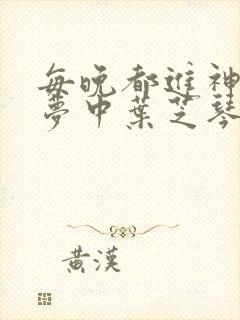 每晚都進神
夢中葉芝琴
黃漢